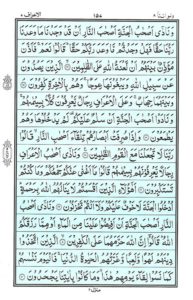 ولو اننا ٨ ١٥٨ الاعراف ٧
وَنَادٰٓى اَصْحٰبُ الْجَنَّةِ اَصْحٰبَ النَّارِ اَنْ قَدْ وَجَدْنَا مَا وَعَدَنَا
رَبُّنَا حَقًّا فَهَلْ وَجَدْتُّمْ مَّا وَعَدَ رَبُّكُمْ حَقًّا قَالُوْا نَعَمْ فَاَذَّنَ
مُؤَذِّنٌۢ بَيْنَهُمْ اَنْ لَّعْنَةُ اللّٰهِ عَلَى الظّٰلِمِيْنَ الَّذِيْنَ يَصُدُّوْنَ
عَنْ سَبِيْلِ اللّٰهِ وَيَبْغُوْنَهَا عِوَجًا وَهُمْ بِالْاٰخِرَةِ كٰفِرُوْنَ
وَبَيْنَهُمَا حِجَابٌ وَعَلَى الْاَعْرَافِ رِجَالٌ يَّعْرِفُوْنَ كُلًّۢا بِسِيْمٰىهُمْ
وَنَادَوْا اَصْحٰبَ الْجَنَّةِ اَنْ سَلٰمٌ عَلَيْكُمْ لَمْ يَدْخُلُوْهَا وَهُمْ
يَطْمَعُوْنَ وَاِذَا صُرِفَتْ اَبْصَارُهُمْ تِلْقَآءَ اَصْحٰبِ النَّارِ قَالُوْا
رَبَّنَا لَا تَجْعَلْنَا مَعَ الْقَوْمِ الظّٰلِمِيْنَ وَنَادٰٓى اَصْحٰبُ الْاَعْرَافِ
رِجَالًا يَّعْرِفُوْنَهُمْ بِسِيْمٰىهُمْ قَالُوْا مَآ اَغْنٰى عَنْكُمْ جَمْعُكُمْ وَمَا كُنْتُمْ
تَسْتَكْبِرُوْنَ اَهٰٓؤُلَآءِ الَّذِيْنَ اَقْسَمْتُمْ لَا يَنَالُهُمُ اللّٰهُ بِرَحْمَةٍ
اُدْخُلُوا الْجَنَّةَ لَا خَوْفٌ عَلَيْكُمْ وَلَآ اَنْتُمْ تَحْزَنُوْنَ وَنَادٰٓى اَصْحٰبُ
النَّارِ اَصْحٰبَ الْجَنَّةِ اَنْ اَفِيْضُوْا عَلَيْنَا مِنَ الْمَآءِ اَوْ مِمَّا رَزَقَكُمُ
اللّٰهُ قَالُوْٓا اِنَّ اللّٰهَ حَرَّمَهُمَا عَلَى الْكٰفِرِيْنَ الَّذِيْنَ اتَّخَذُوْا
دِيْنَهُمْ لَهْوًا وَّلَعِبًا وَّغَرَّتْهُمُ الْحَيٰوةُ الدُّنْيَا فَالْيَوْمَ نَنْسٰىهُمْ
كَمَا نَسُوْا لِقَآءَ يَوْمِهِمْ هٰذَا وَمَا كَانُوْا بِاٰيٰتِنَا يَجْحَدُوْنَ
منزل ٢